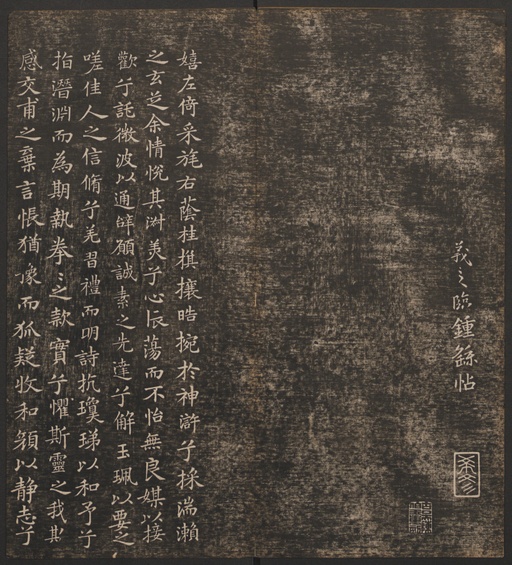 羲之臨鍾繇帖
嬉左倚采旄右蔭桂棋攘皓捥於神滸兮採湍瀨
之玄芝余情悅其淑美兮心振蕩而不怡無良媒以接
歡兮託微波以通辭願誠素之先達兮解玉珮以要之
嗟佳人之信脩兮羌習禮而明詩抗瓊珶以和予兮
指潛淵而為期執拳〻之款實兮懼斯靈之我欺
感交甫之棄言悵猶豫而狐疑收和顏以靜志兮